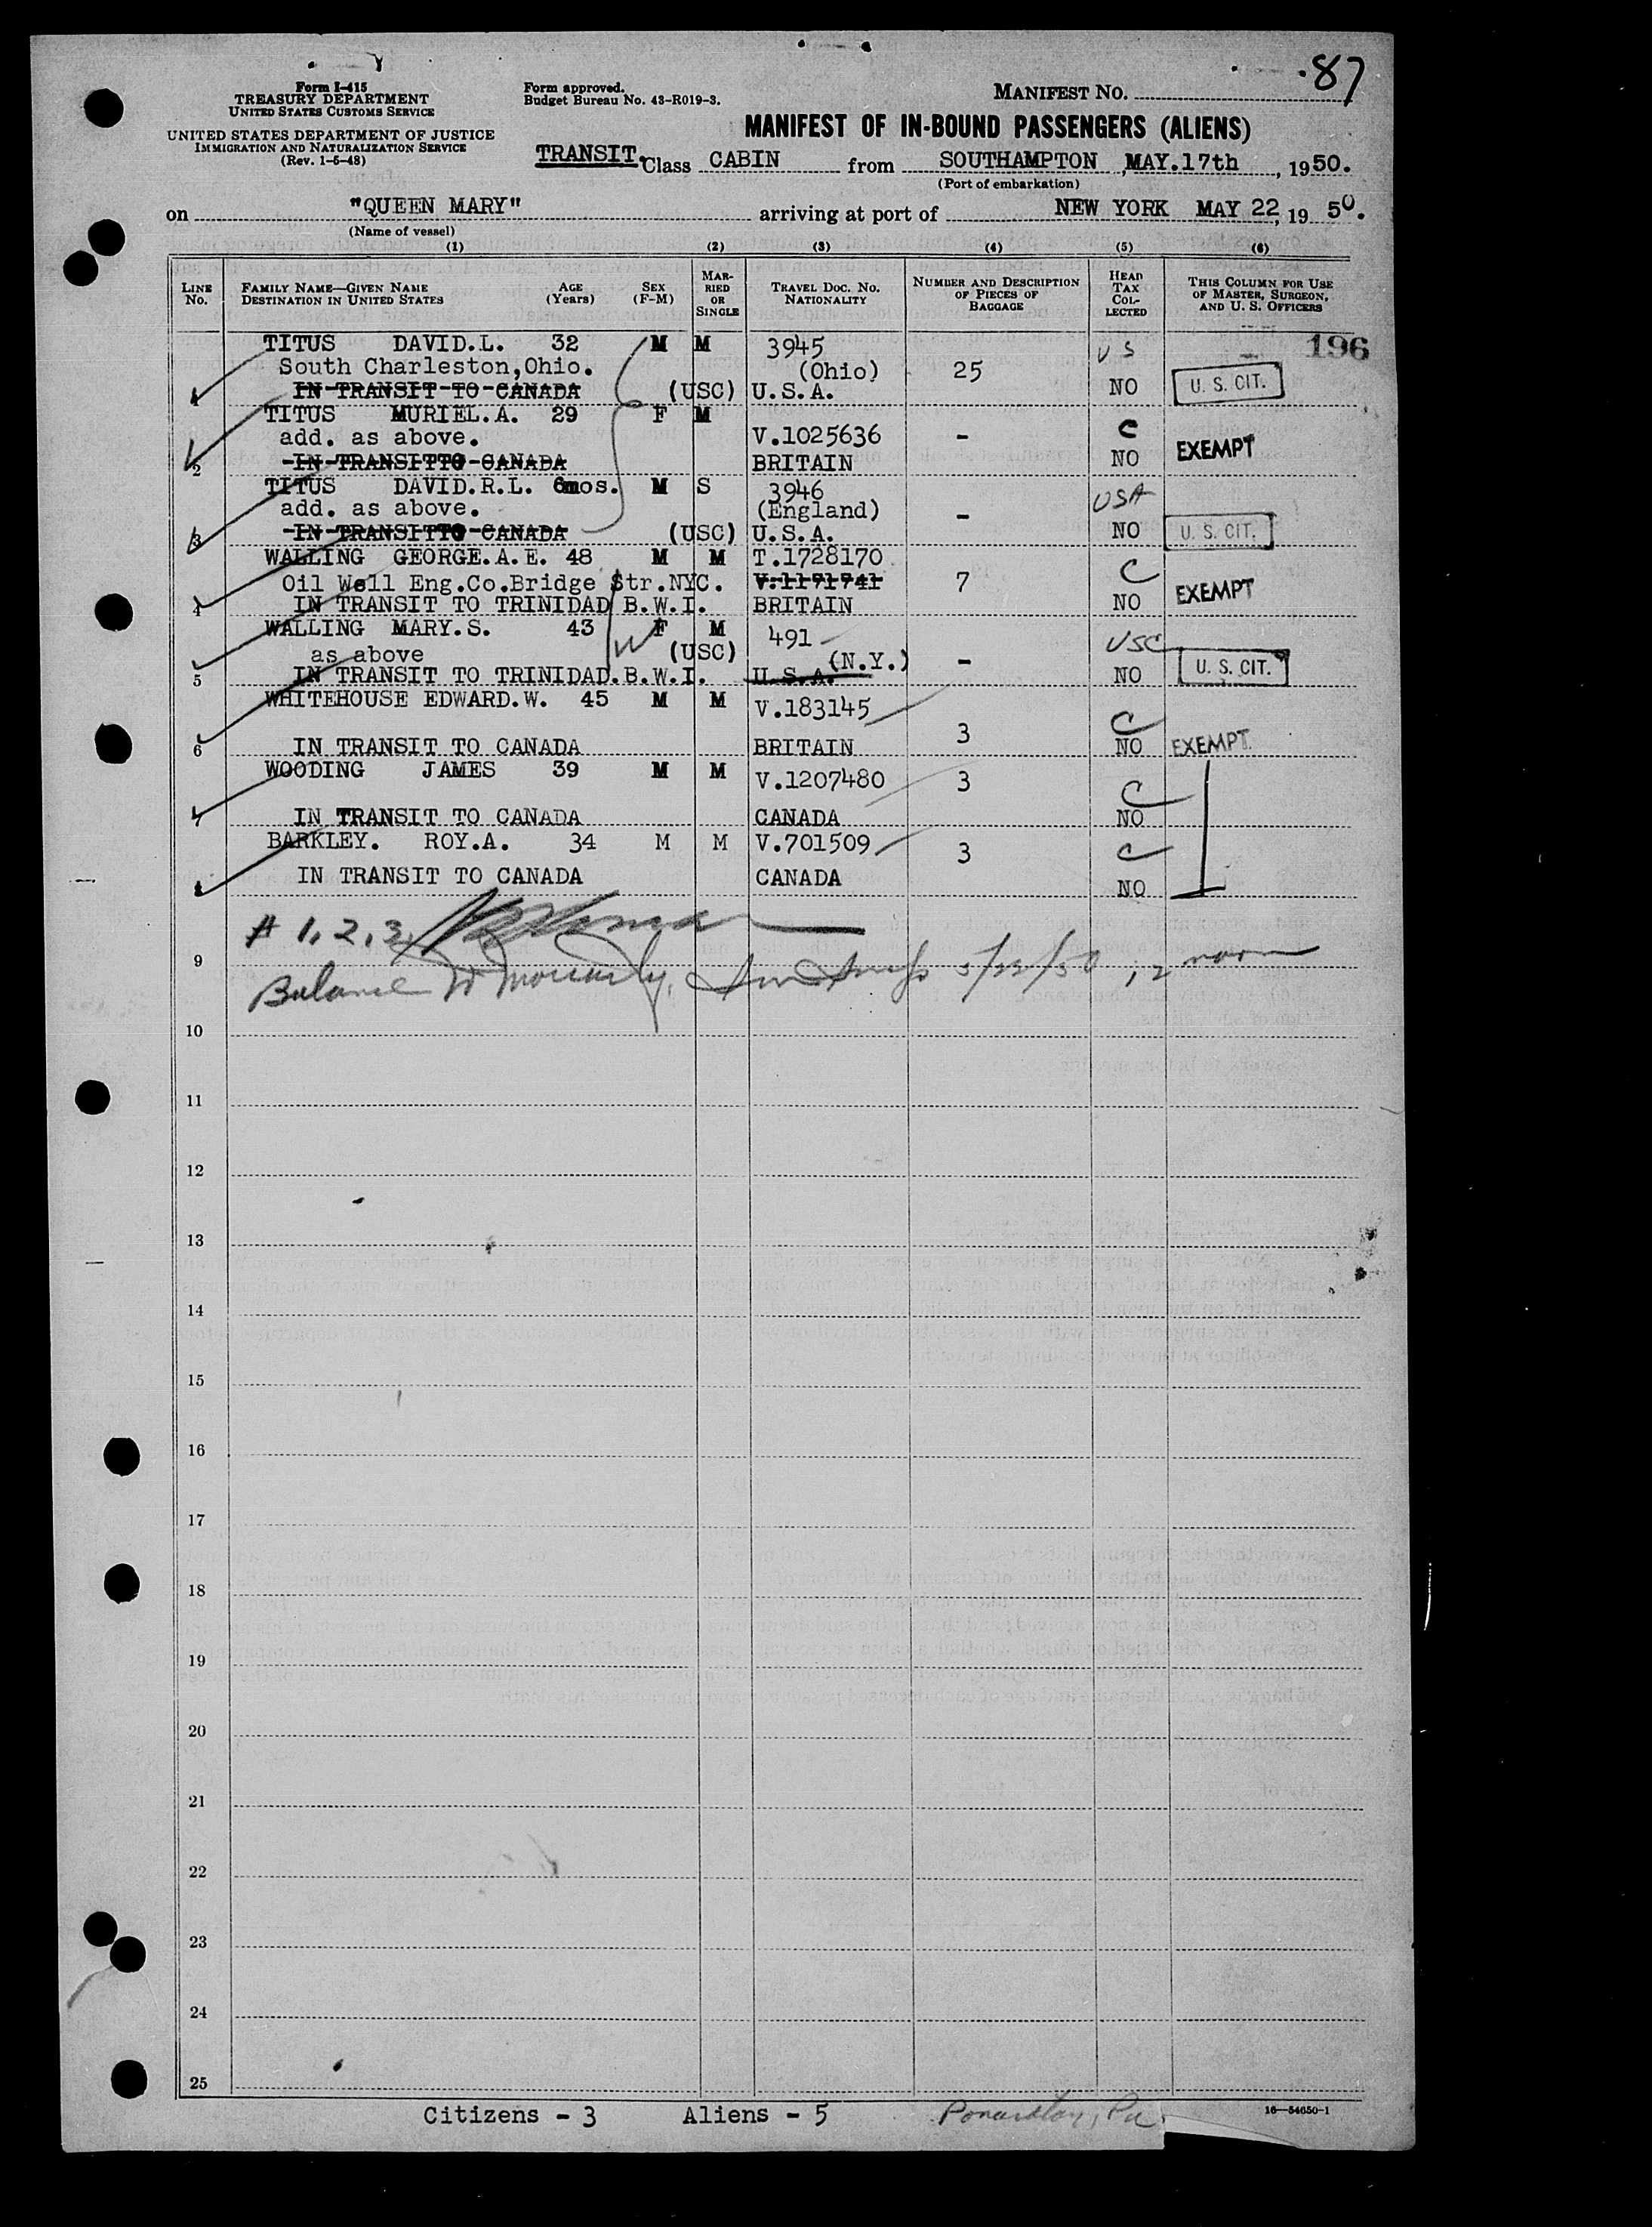 87
Form I-415
TREASURY DEPARTMENT
UNITED STATES CUSTOMS SERVICE
UNITED STATES DEPARTMENT OF JUSTICE
IMMIGRATION AND NATURALIZATION SERVICE
(Rev. 1-6-48)
Form approved.
Budget Bureau No. 43-R019-3.
MANIFEST NO.
MANIFEST OF IN-BOUND PASSENGERS (ALIENS)
TRANSIT. Class CABIN from SOUTHAMPTON, MAY.17th, 1950.
(Port of embarkation)
on "QUEEN MARY" arriving at port of NEW YORK MAY 22, 19 50.
(Name of vessel)
(1) (2) (3) (4) (5) (6)
LINE No. FAMILY NAME—GIVEN NAME DESTINATION IN UNITED STATES AGE (Years) SEX (F-M) MARRIED OR SINGLE TRAVEL DOC. NO. NATIONALITY NUMBER AND DESCRIPTION OF PIECES OF BAGGAGE HEAD TAX COLLECTED THIS COLUMN FOR USE OF MASTER, SURGEON, AND U. S. OFFICERS
196
TITUS DAVID.L. 32 M M 3945 U S
South Charleston,Ohio. (Ohio) 25
1 IN TRANSIT TO CANADA (USC) U.S.A. NO U. S. CIT.
TITUS MURIEL.A. 29 F M C
add. as above. V.1025636 - EXEMPT
2 IN TRANSITTO CANADA BRITAIN NO
TITUS DAVID.R.L. 6mos. M S 3946 USA
add. as above. (England) -
3 IN TRANSITTO CANADA (USC) U.S.A. NO U. S. CIT.
WALLING GEORGE.A.E. 48 M M T.1728170 C
Oil Well Eng.Co.Bridge Str.NYC. V.1191741 7 EXEMPT
4 IN TRANSIT TO TRINIDAD B.W.I. BRITAIN NO
WALLING MARY.S. 43 F M 491 USC
as above (USC) (N.Y.) - U. S. CIT.
5 IN TRANSIT TO TRINIDAD.B.W.I. U.S.A. NO
WHITEHOUSE EDWARD.W. 45 M M V.183145 C
6 IN TRANSIT TO CANADA BRITAIN 3 NO EXEMPT
WOODING JAMES 39 M M V.1207480 3 C
7 IN TRANSIT TO CANADA CANADA NO
BARKLEY. ROY.A. 34 M M V.701509 3 C
8 IN TRANSIT TO CANADA CANADA NO
# 1, 2, 3,
9
Balance 5/22/50 12 noon
10
11
12
13
14
15
16
17
18
19
20
21
22
23
24
25
Citizens - 3 Aliens - 5 Pa. 16—54650-1